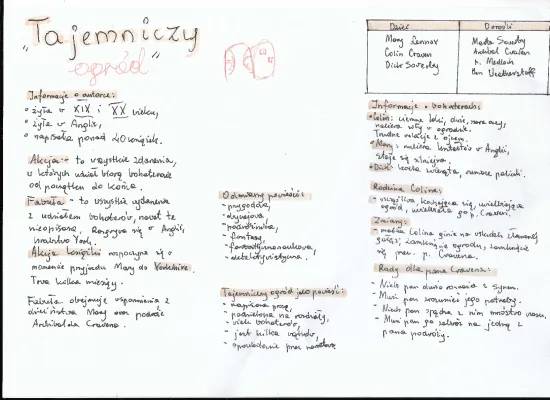 "Tajemniczy
ogród"
Informacje o autorce:
• żyła w XIX i XX wieku,
• żyła w Anglii,
• napisała ponad 40 książek.
Akcja - to wszystkie zdarzenia,
w których udział biorą bohaterowie
od początku do końca.
Fabuła - to wszystkie wydarzenia
z udziałem bohaterów, nawet te
nieopisane. Rozgrywa się w Anglii,
hrabstwo York.
Akcja książki rozpoczyna się w
momencie przyjazdu Mary do Yorkshire.
Trwa kilka miesięcy.
Fabuła obejmuje wspomnienia z
dzieciństwa Mary oraz podróże
Archibalda Cravena.
Odmiany powieści:
- przygodowa,
- podróżnicza,
- fantasy,
- detektywistyczna.
Tajemniczy ogród jako powieść:
- napisana prozą,
- podzielona na rozdziały,
- wielu bohaterów,
- jest kilka wątków,
- opowiedziane przez narratora
Dzieci
Dorośli
Mary Lennox
Colin Craven
Dick Sowerby
Marta Sowerby
Archibald Craven
p. Medlock
Ben Weatherstaff
Informacje o bohaterach:
Colin: ciemne loki, duże, szare oczy,
nabiera siły w ogrodzie.
Trudne relacje z ojcem.
• Mary:
staje się silniejsza.
• Dick: kocha zwierzęta, rumiane policzki.
Rodzina Colina:
- szczęśliwa, kochająca się, uwielbiająca
ogród, p. Craven.
Zmiany:
- matka Colina ginie na skutek złamanej
gałęzi, zamknięcie ogrodu, zamknięcie
się przez p. Cravena.
Rady dla pana Cravena:
- Niech pan dużo rozmawia z synem.
- Musi pan zrozumieć jego potrzeby.
- Niech pan spędza z nim mnóstwo czasu.
- Musi pan go zabrać na jedną z
pana podróży.